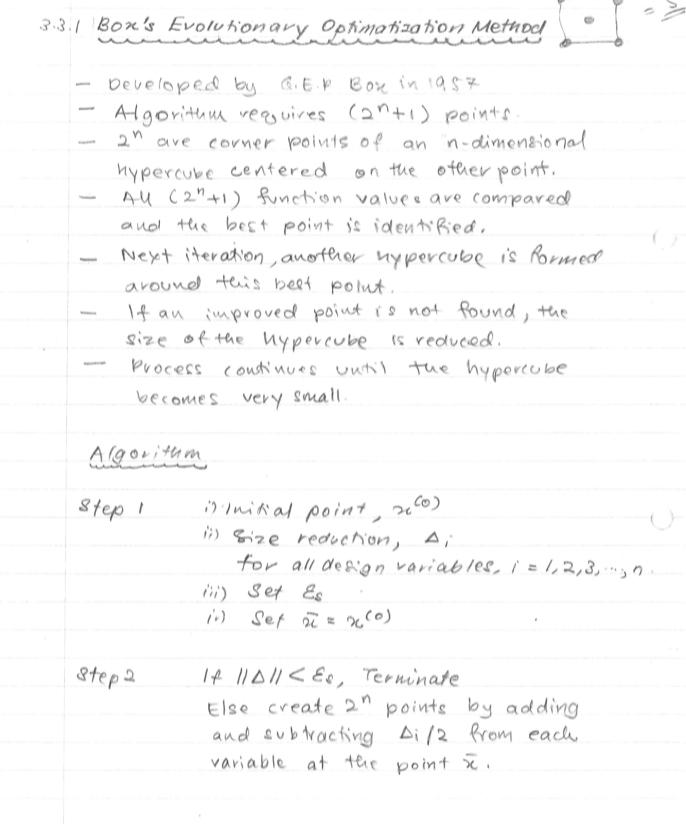 3.3.1 Box's Evolutionary Optimatization Method
- Developed by G.E.P Box in 1957
- Algorithm requires (2ⁿ+1) points.
- 2ⁿ are corner points of an n-dimensional
hypercube centered on the other point.
- All (2ⁿ+1) function values are compared
and the best point is identified.
- Next iteration, another hypercube is formed
around this best point.
- If an improved point is not found, the
size of the hypercube is reduced.
- Process continues until the hypercube
becomes very small.
Algorithm
Step 1 i) Initial point, x⁽⁰⁾
ii) Size reduction, Δi
for all design variables, i = 1,2,3,...,n.
iii) Set εs
iv) Set x̄ = x⁽⁰⁾
Step 2 If ||Δ|| < εs, Terminate
Else create 2ⁿ points by adding
and subtracting Δi/2 from each
variable at the point x̄.